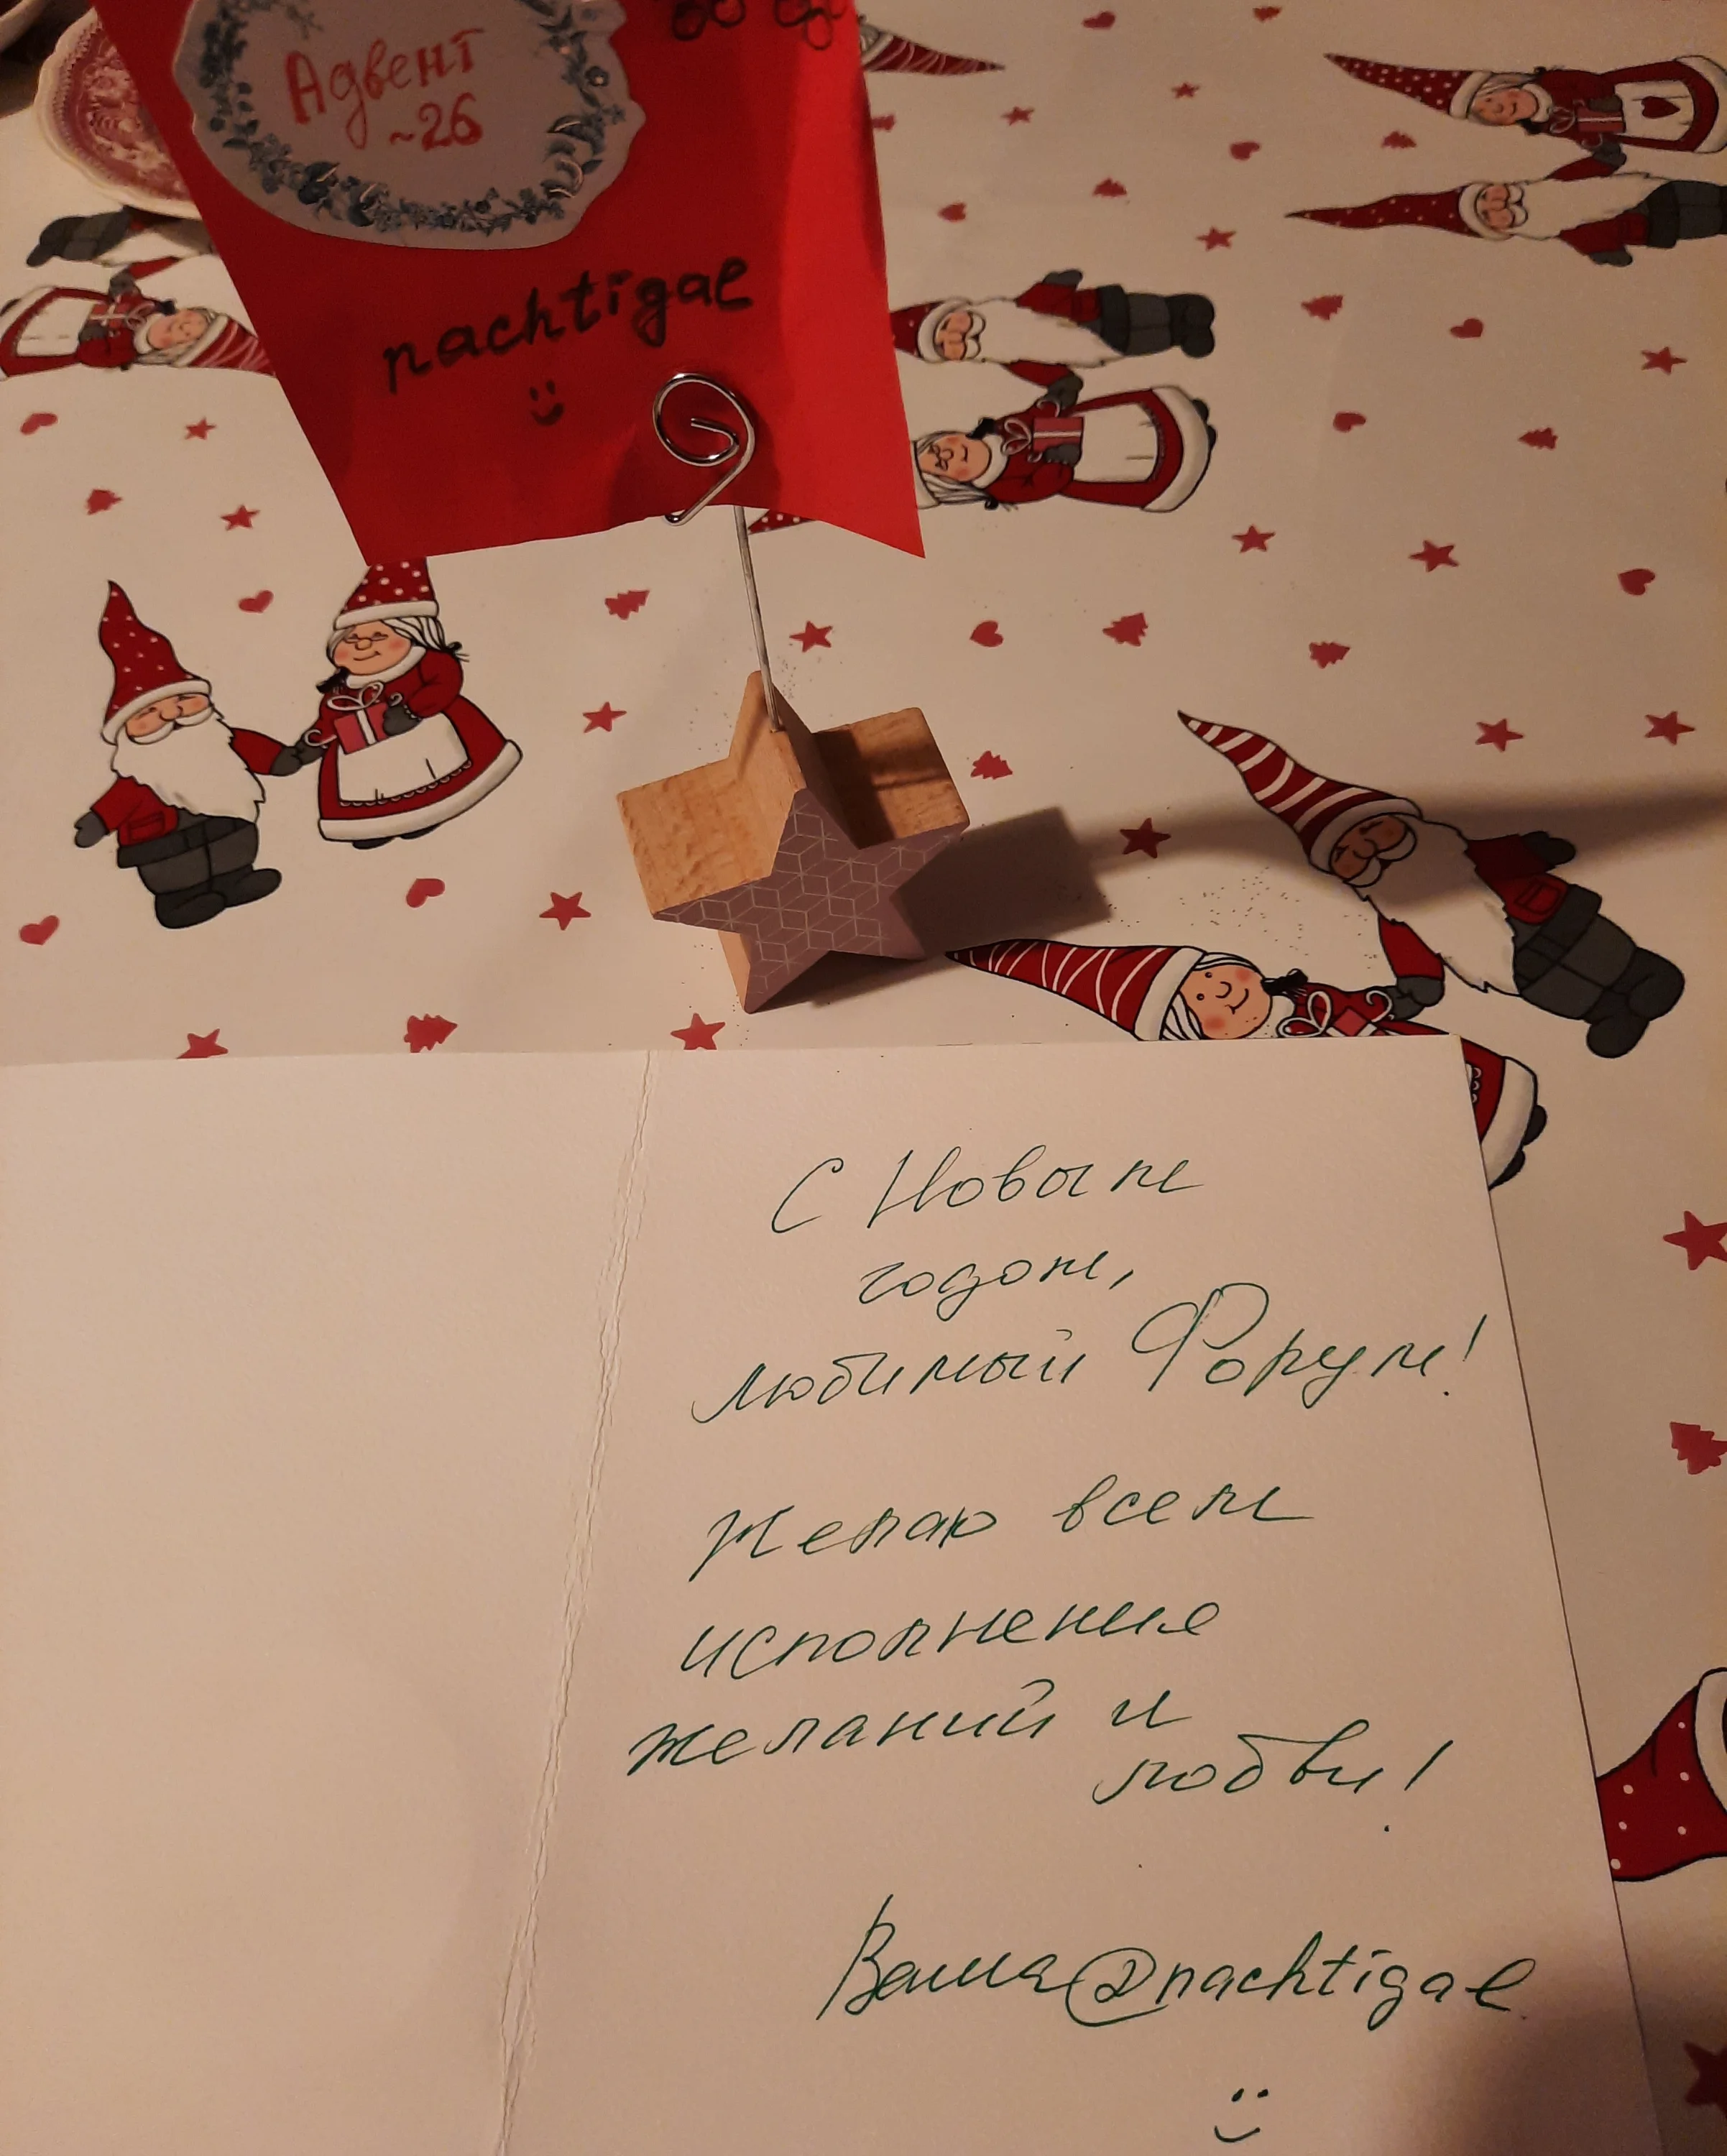 Адвент
~26
nachtigal
С Новым
годом,
любимый Форум!
Желаю всем
исполнения
желаний и
любви!
Ваша @nachtigal